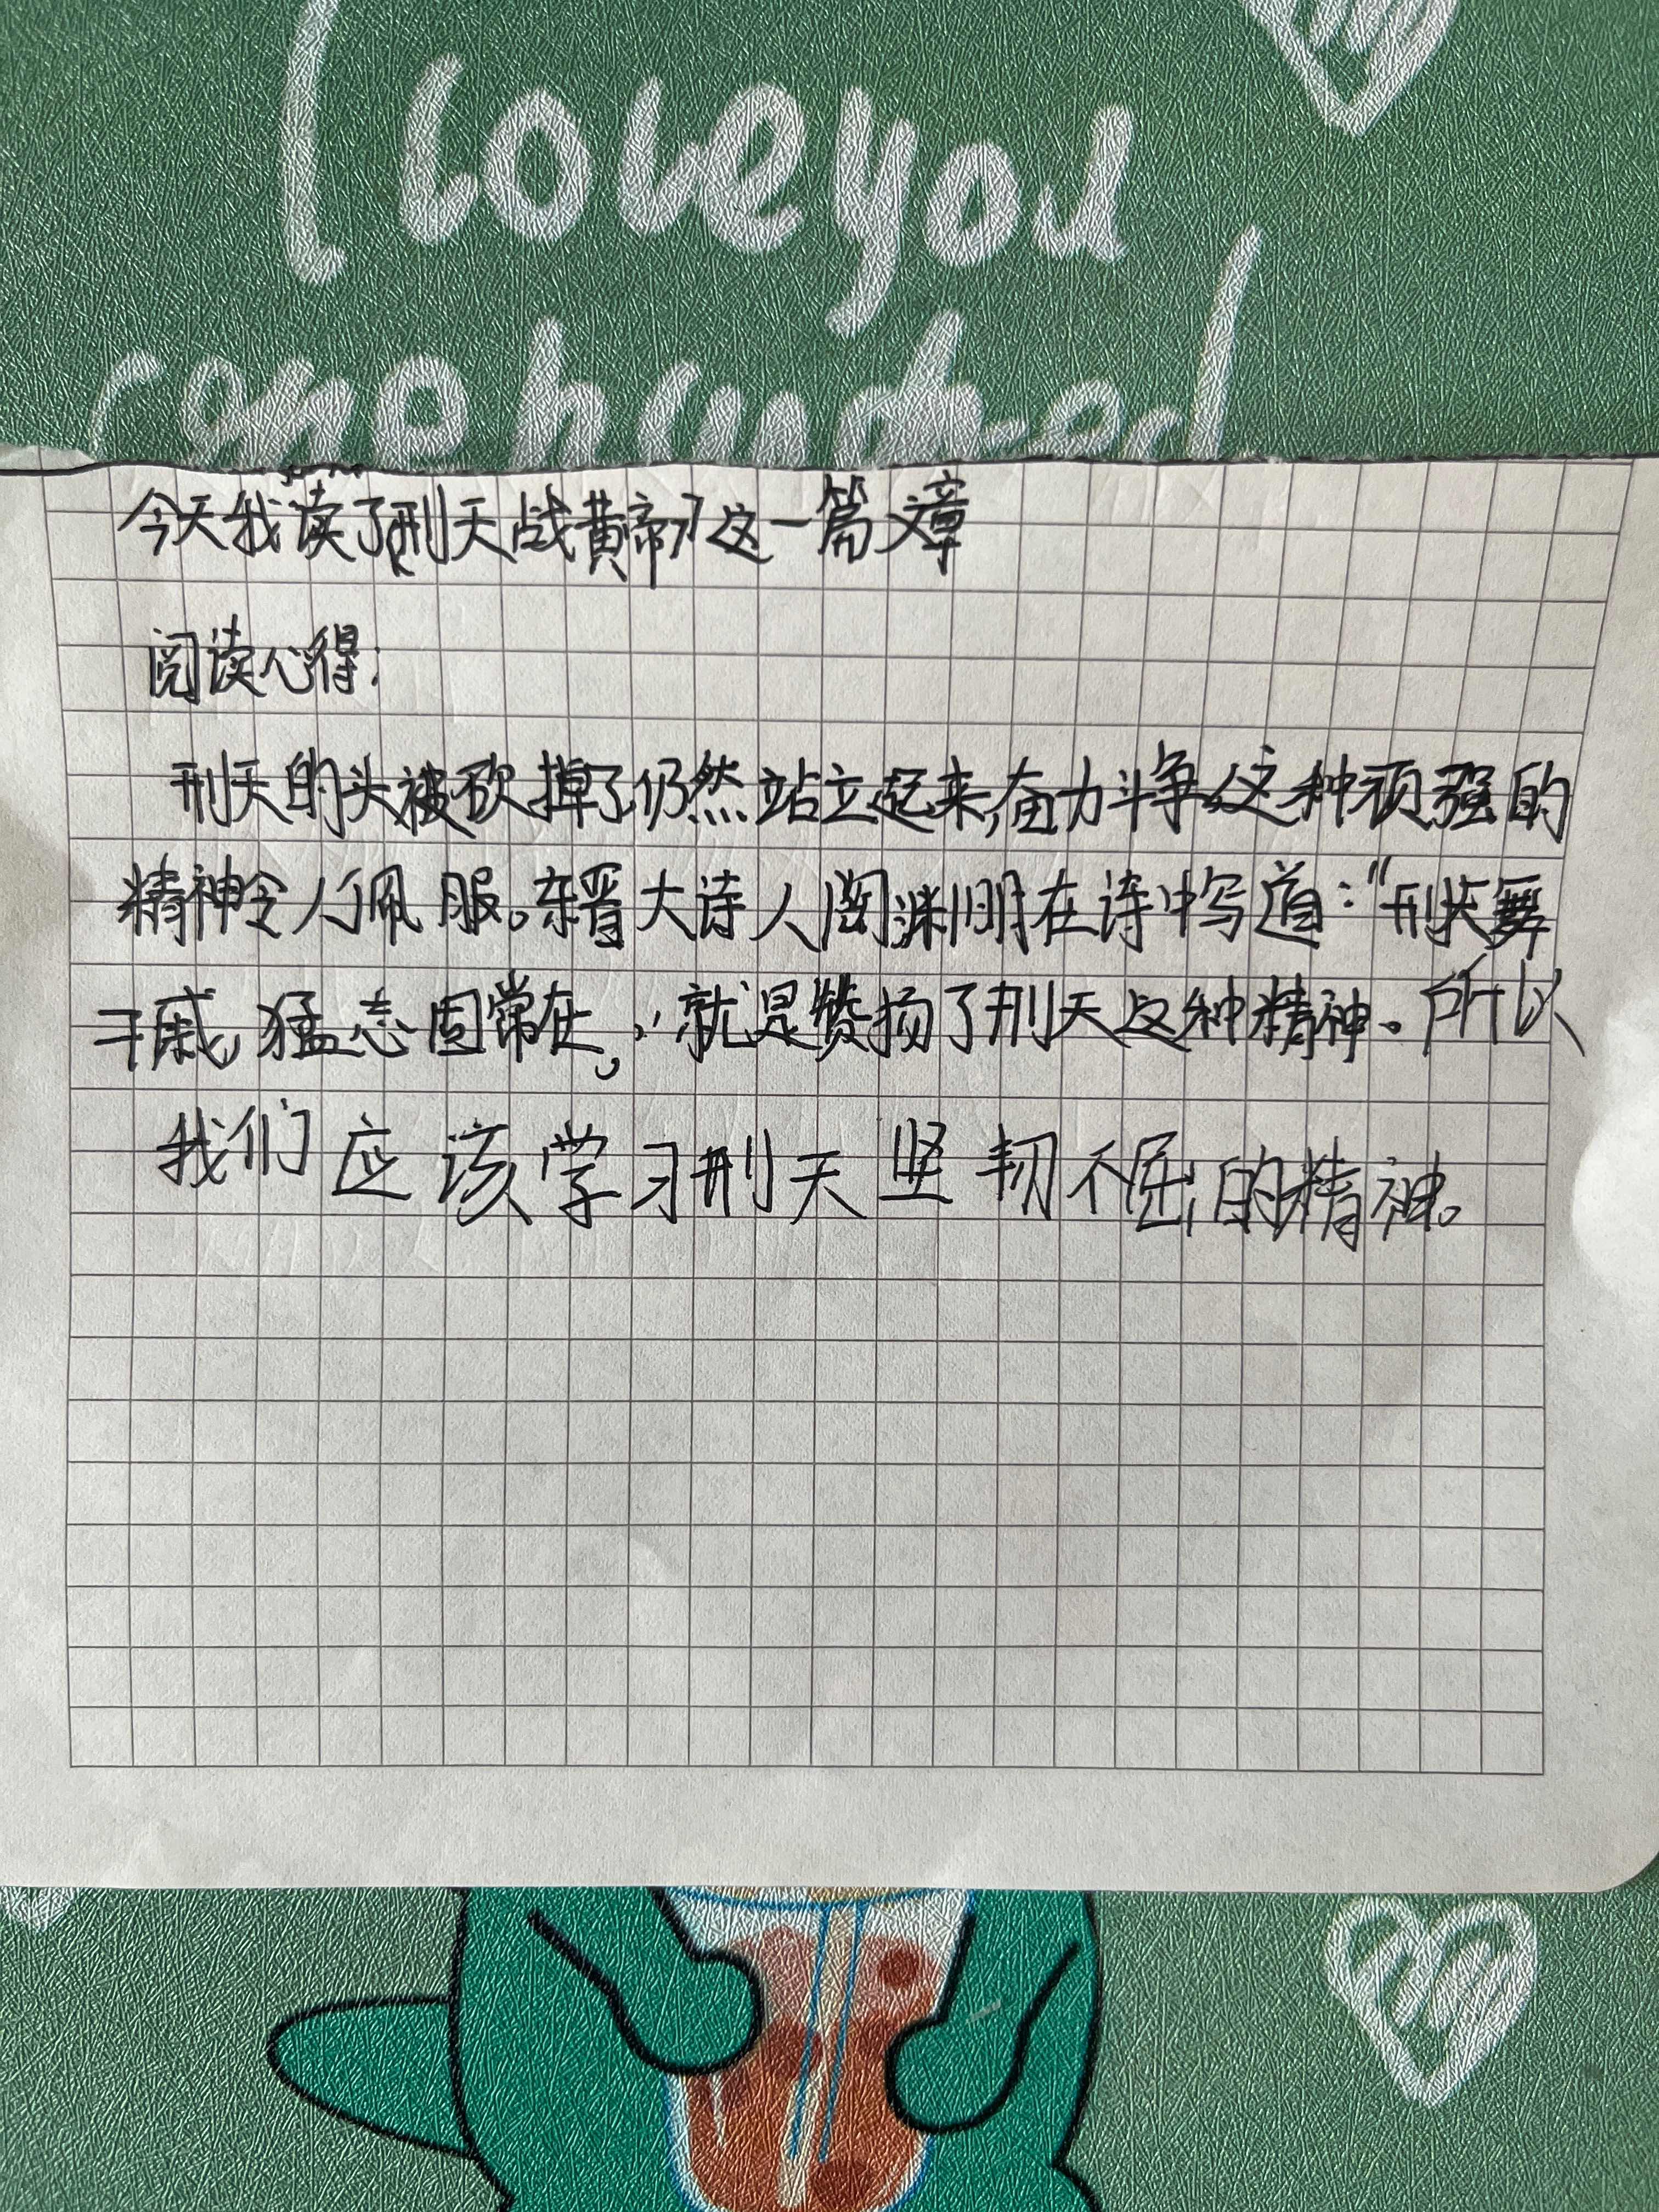 I love you
one hundred
今天我读了刑天战黄帝这一篇文章
阅读心得:
刑天的头被砍掉了仍然站立起来,奋力斗争,这种顽强的
精神令人佩服。东晋大诗人陶渊明在诗中写道:“刑天舞
干戚,猛志固常在,”就是赞扬了刑天这种精神。所以
我们应该学习刑天坚韧不屈的精神。